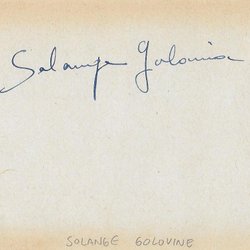 Solange Golovine
SOLANGE GOLOVINE